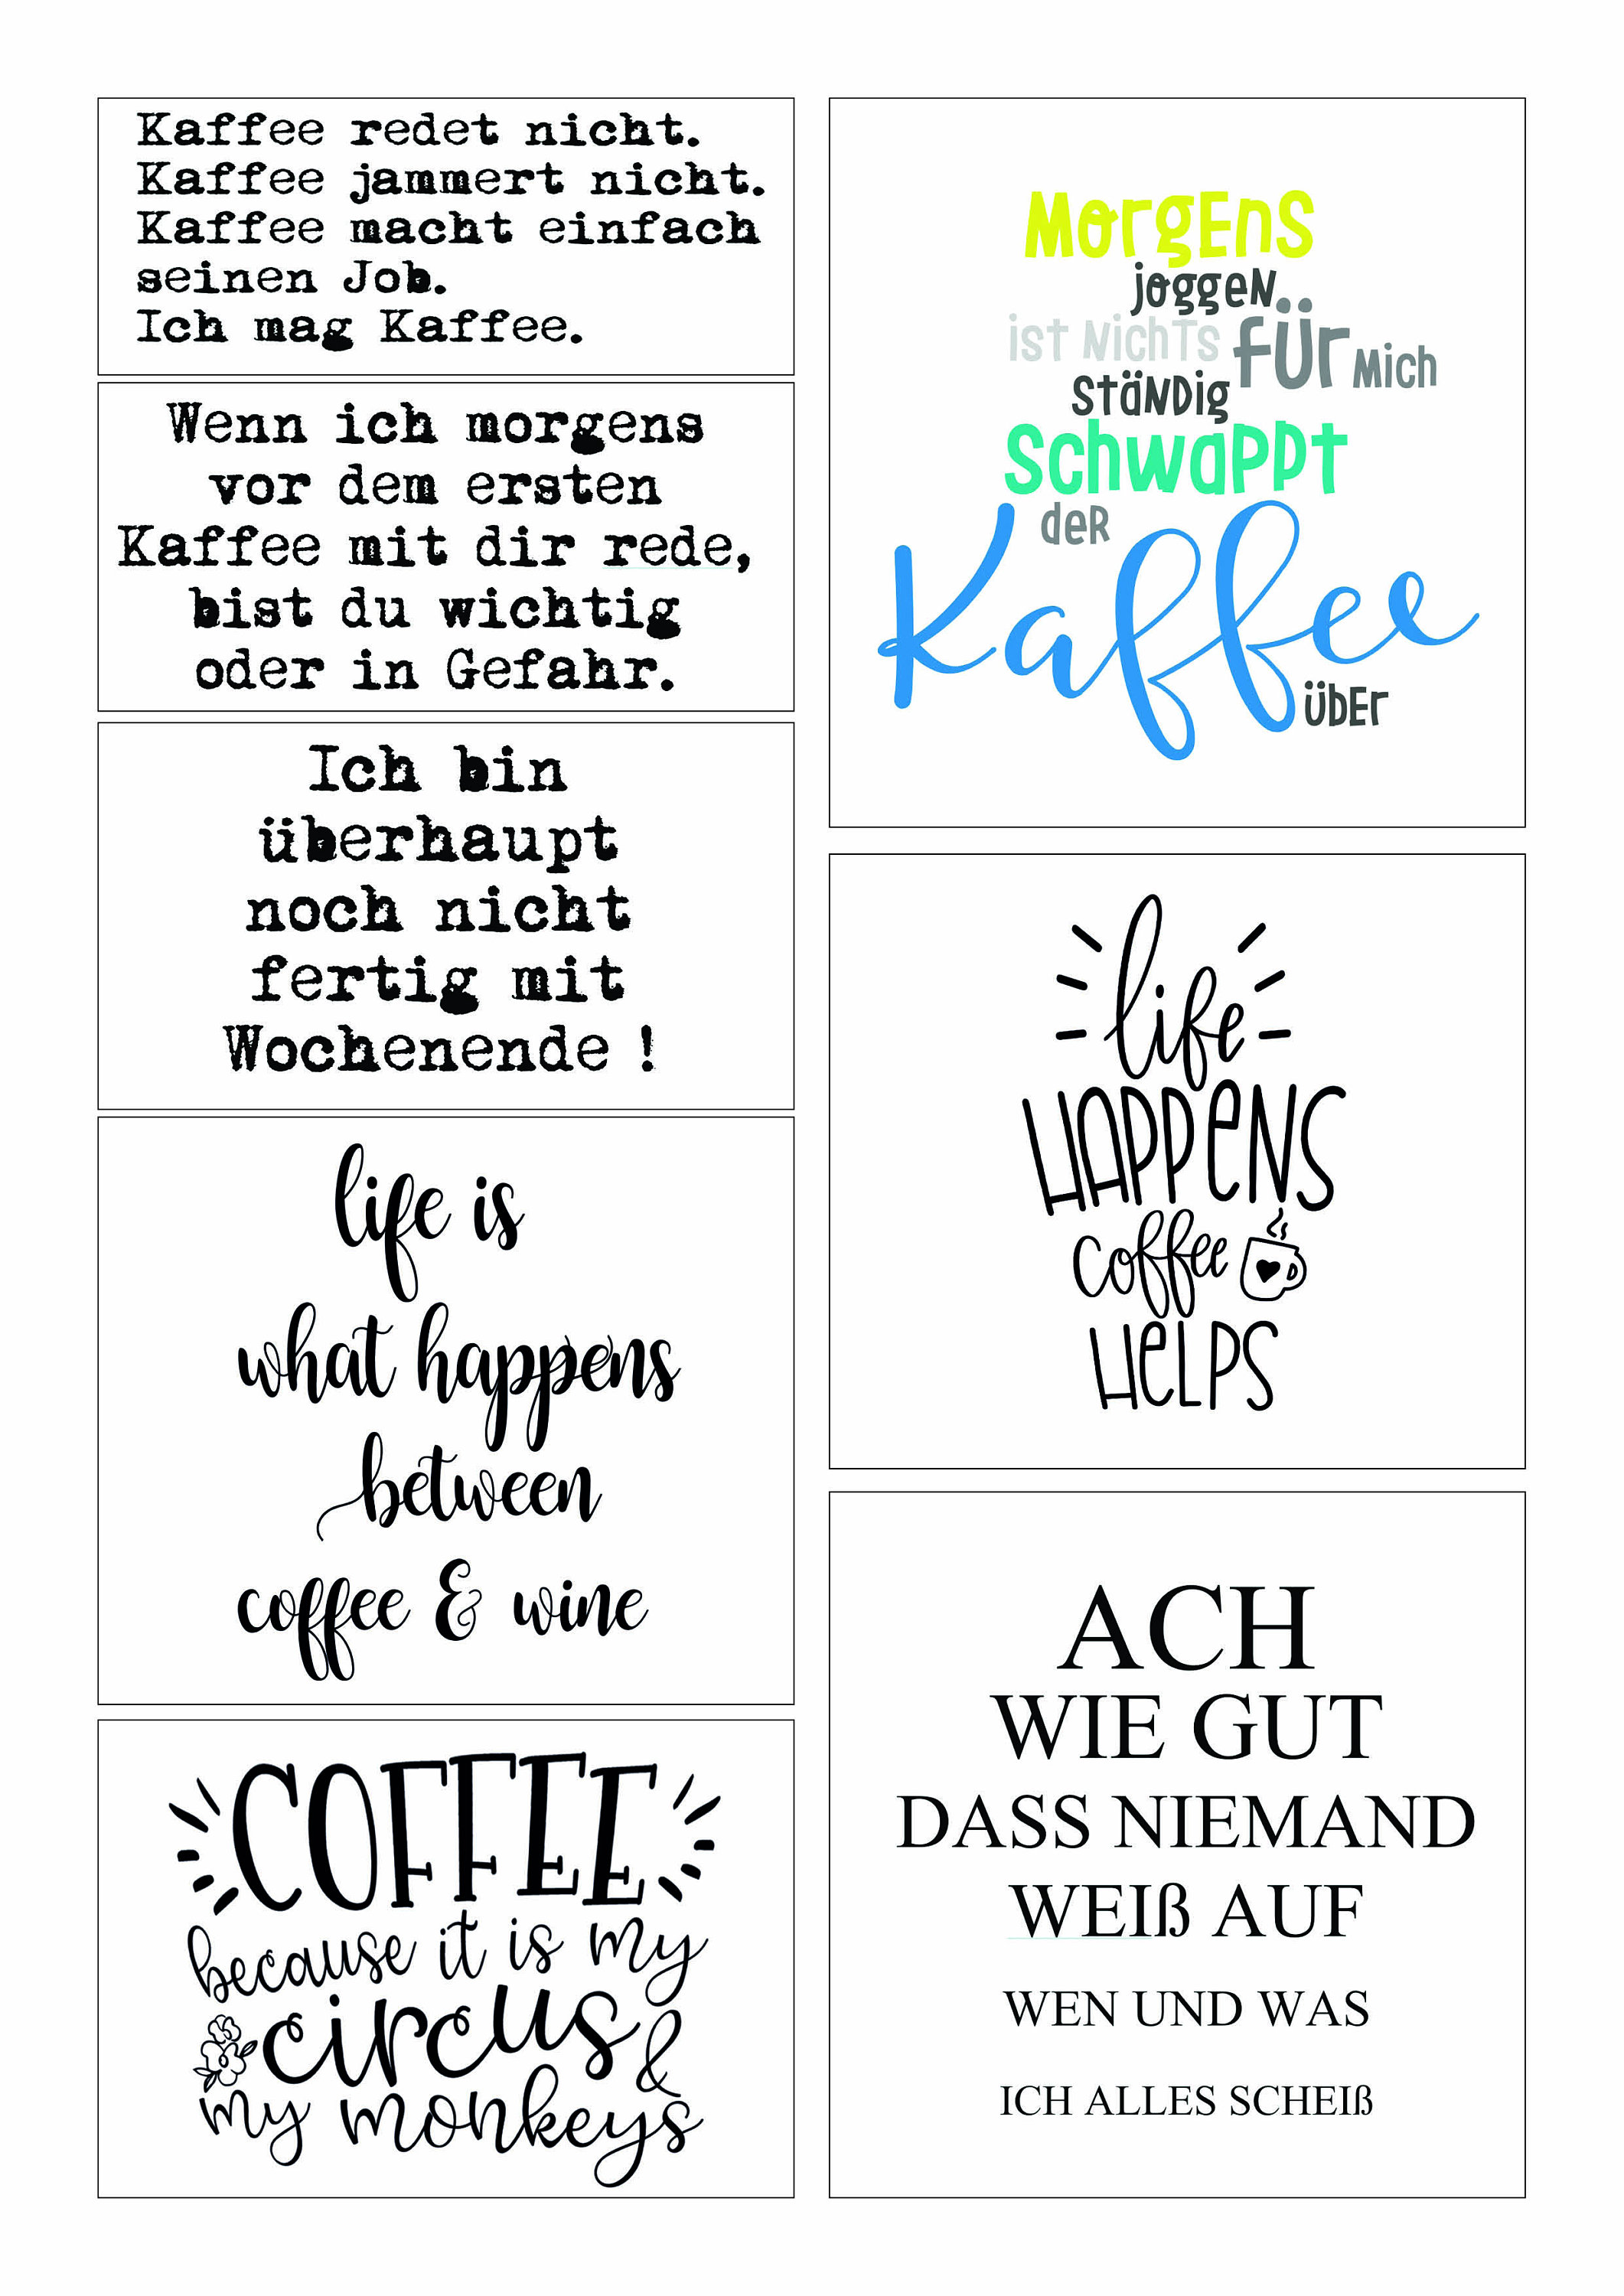 Kaffee redet nicht.
Kaffee jammert nicht.
Kaffee macht einfach
seinen Job.
Ich mag Kaffee.
Wenn ich morgens
vor dem ersten
Kaffee mit dir rede,
bist du wichtig
oder in Gefahr.
Ich bin
überhaupt
noch nicht
fertig mit
Wochenende !
life is
what happens
between
coffee & wine
COFFEE
because it is my
circus &
my monkeys
MorgEnS
joggeN
ist NichTs für Mich
STäNDig
SchwaPPt
deR
Kaffee
übEr
life
HAPPeNS
coffee
HeLPS
ACH
WIE GUT
DASS NIEMAND
WEIß AUF
WEN UND WAS
ICH ALLES SCHEIß